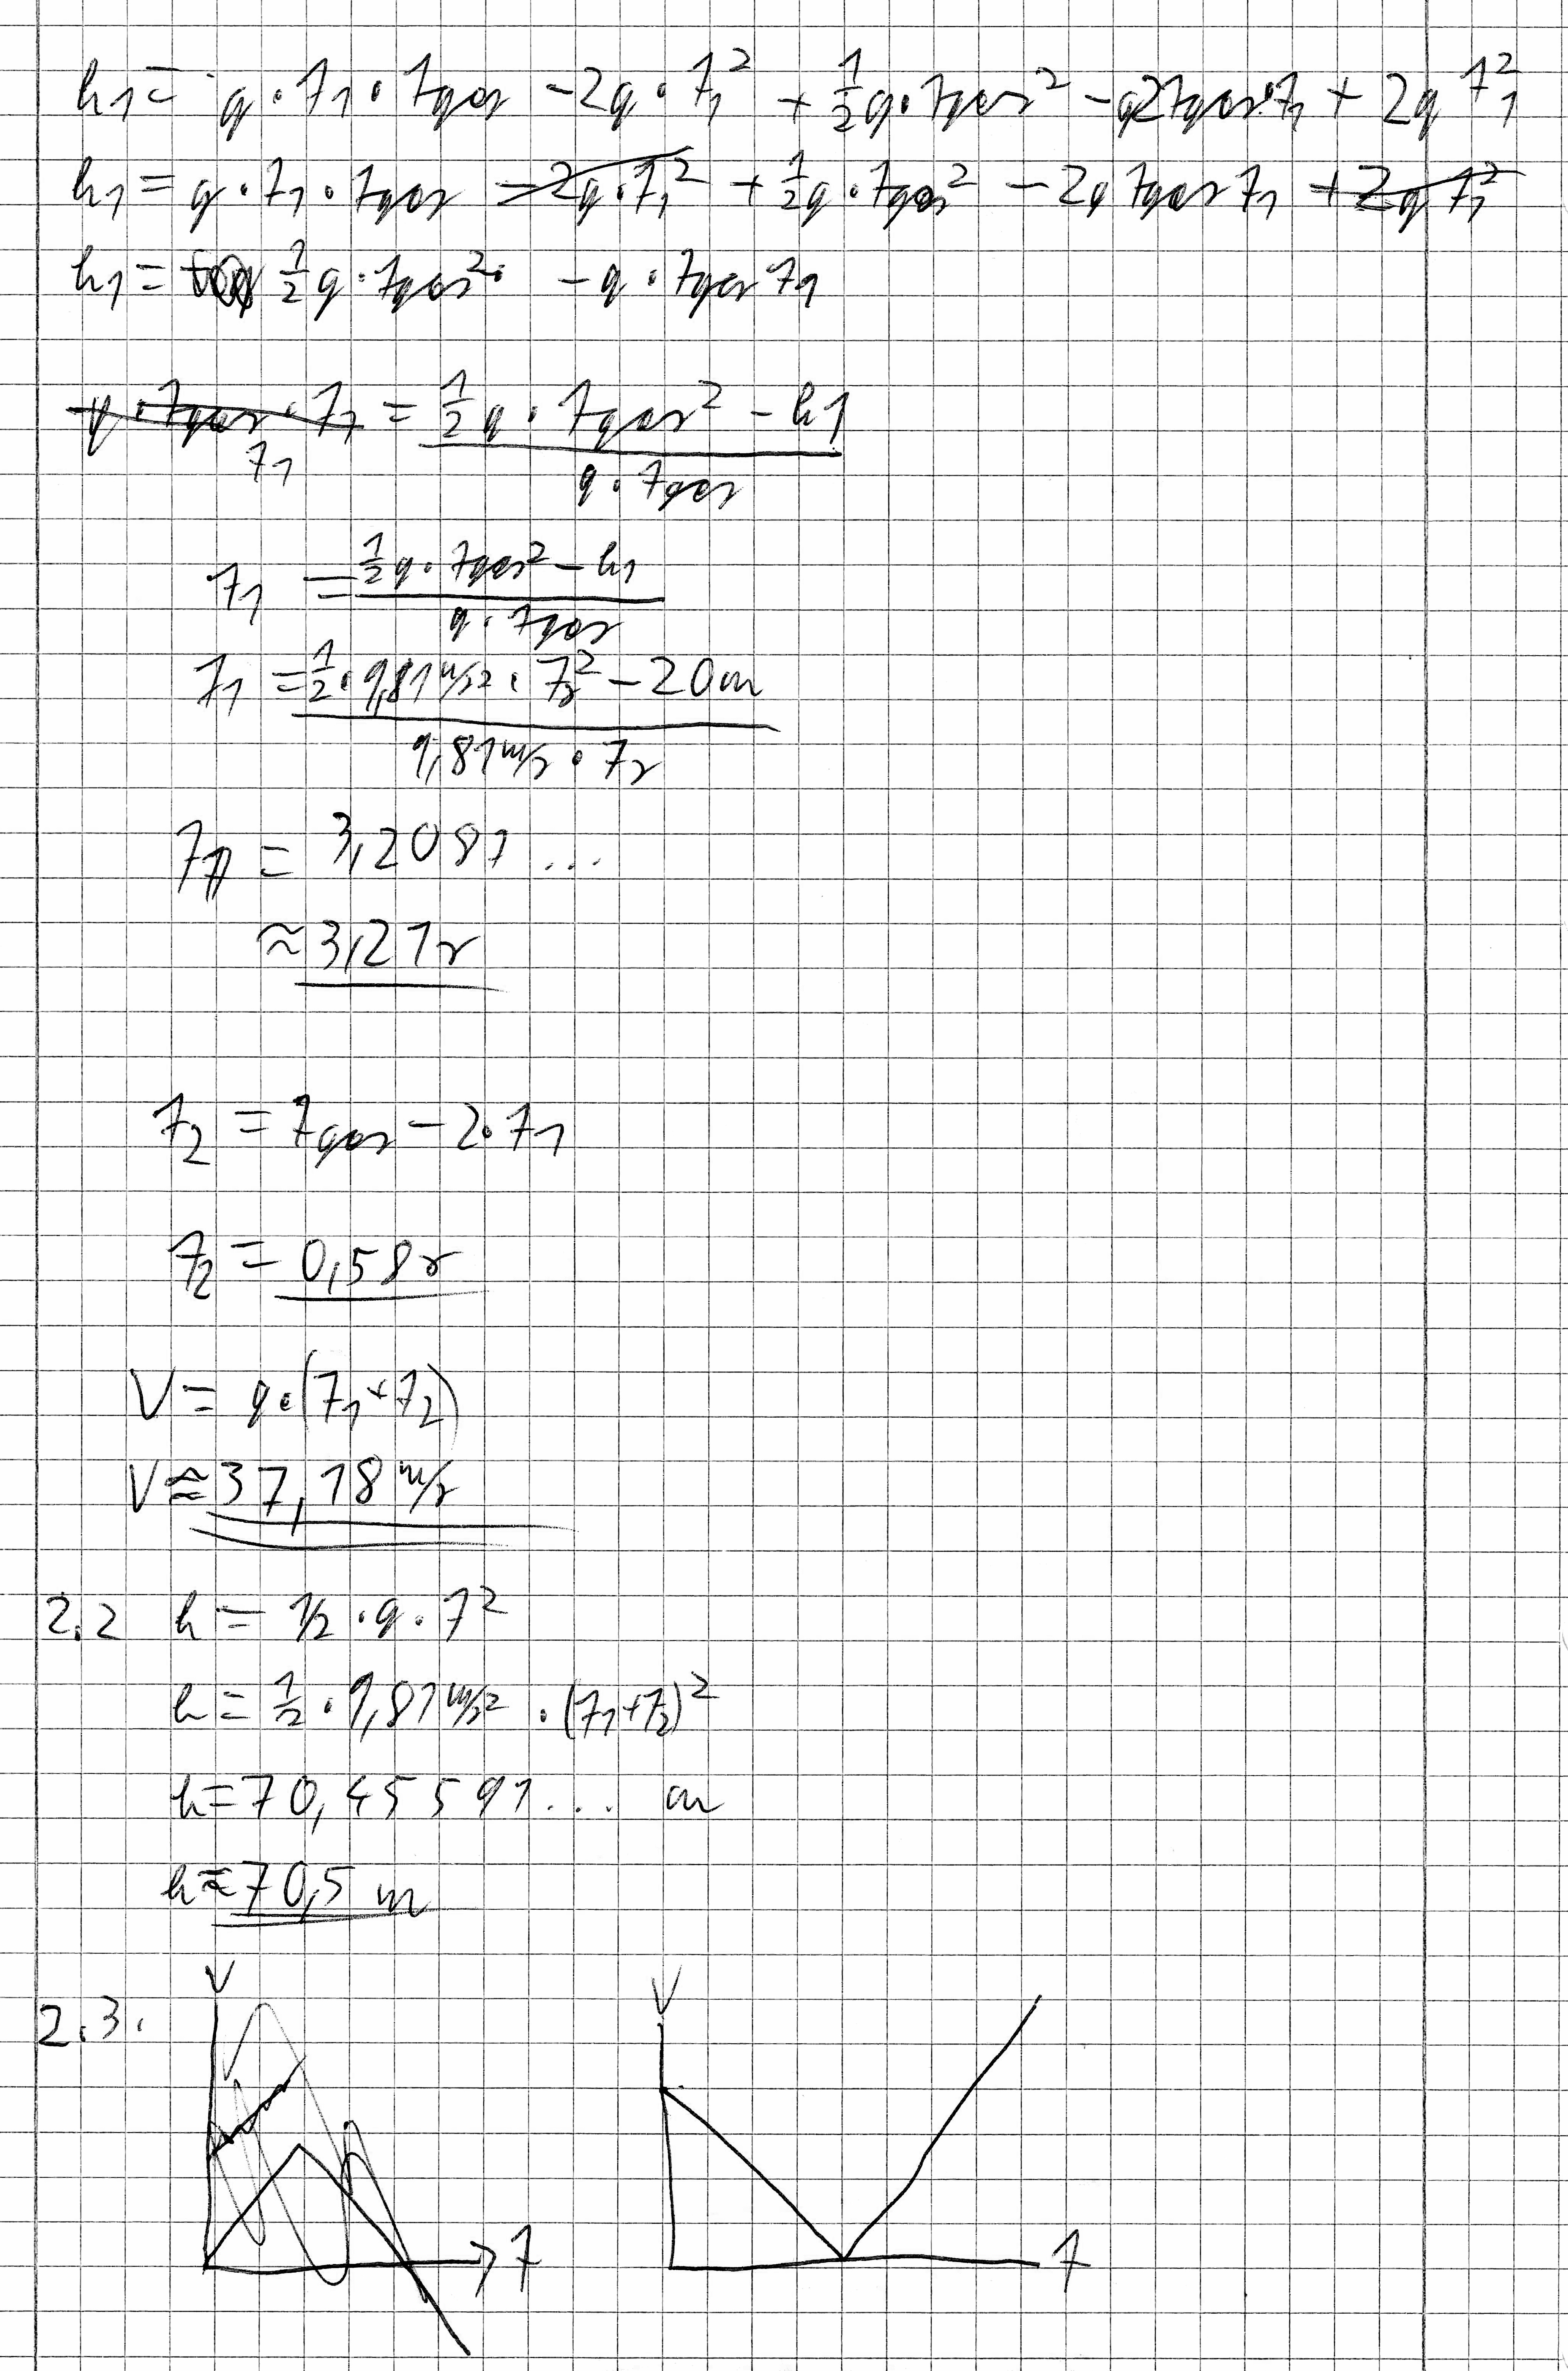 h1 = g · t1 · tges - 2g · t1² + 1/2 g · tges² - g2tges · t1 + 2g t1²
h1 = g · t1 · tges - 2g · t1² + 1/2 g · tges² - 2g tges t1 + 2g t1²
h1 = 1/2 g · tges² · - g · tges t1
g · tges · t1 = 1/2 g · tges² - h1
t1 g · tges
t1 = 1/2 g · tges² - h1
g · tges
t1 = 1/2 · 9,81 m/s² · 7s² - 20m
9,81 m/s · 7s
t1 = 3,2087 ...
≈ 3,21s
t2 = tges - 2 · t1
t2 = 0,58s
V = g · (t1 + t2)
V ≈ 37,18 m/s
2.2 h = 1/2 · g · t²
h = 1/2 · 9,81 m/s² · (t1+t2)²
h = 70,45591... m
h ≈ 70,5 m
2.3.
V V
t t